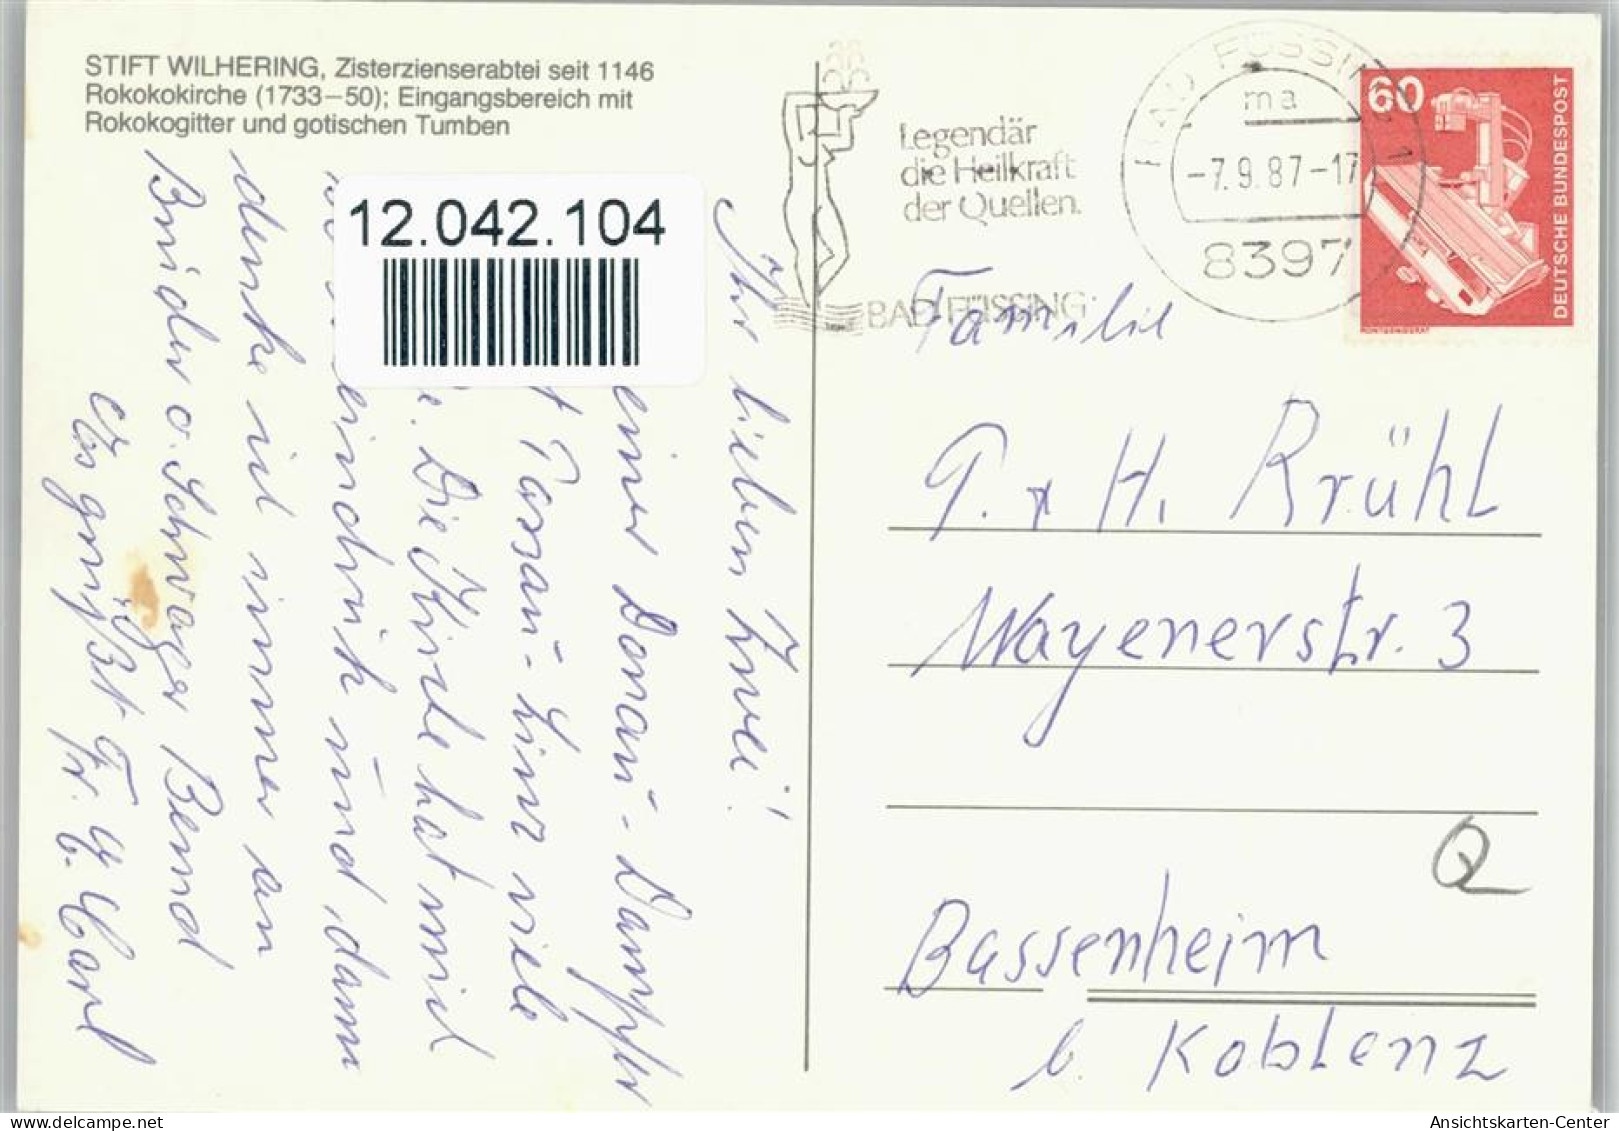 STIFT WILHERING, Zisterzienserabtei seit 1146
Rokokokirche (1733–50); Eingangsbereich mit
Rokokogitter und gotischen Tumben
12.042.104
Legendär
die Heilkraft
der Quellen.
BAD FÜSSING
BAD FÜSSING 1
ma
-7.9.87-17
8397
60
DEUTSCHE BUNDESPOST
Ihr lieben Zwei!
einer Donau-Dampfer
Passau-Linz viele
Die Kirche hat mich
beeindruckt und dann
denke ich immer an
Bruder o. Schwager Bernd
Es grüßt
Familie
P. + H. Rrühl
Wayenerstr. 3
Bassenheim
b. Koblenz
Q
Ansichtskarten-Center